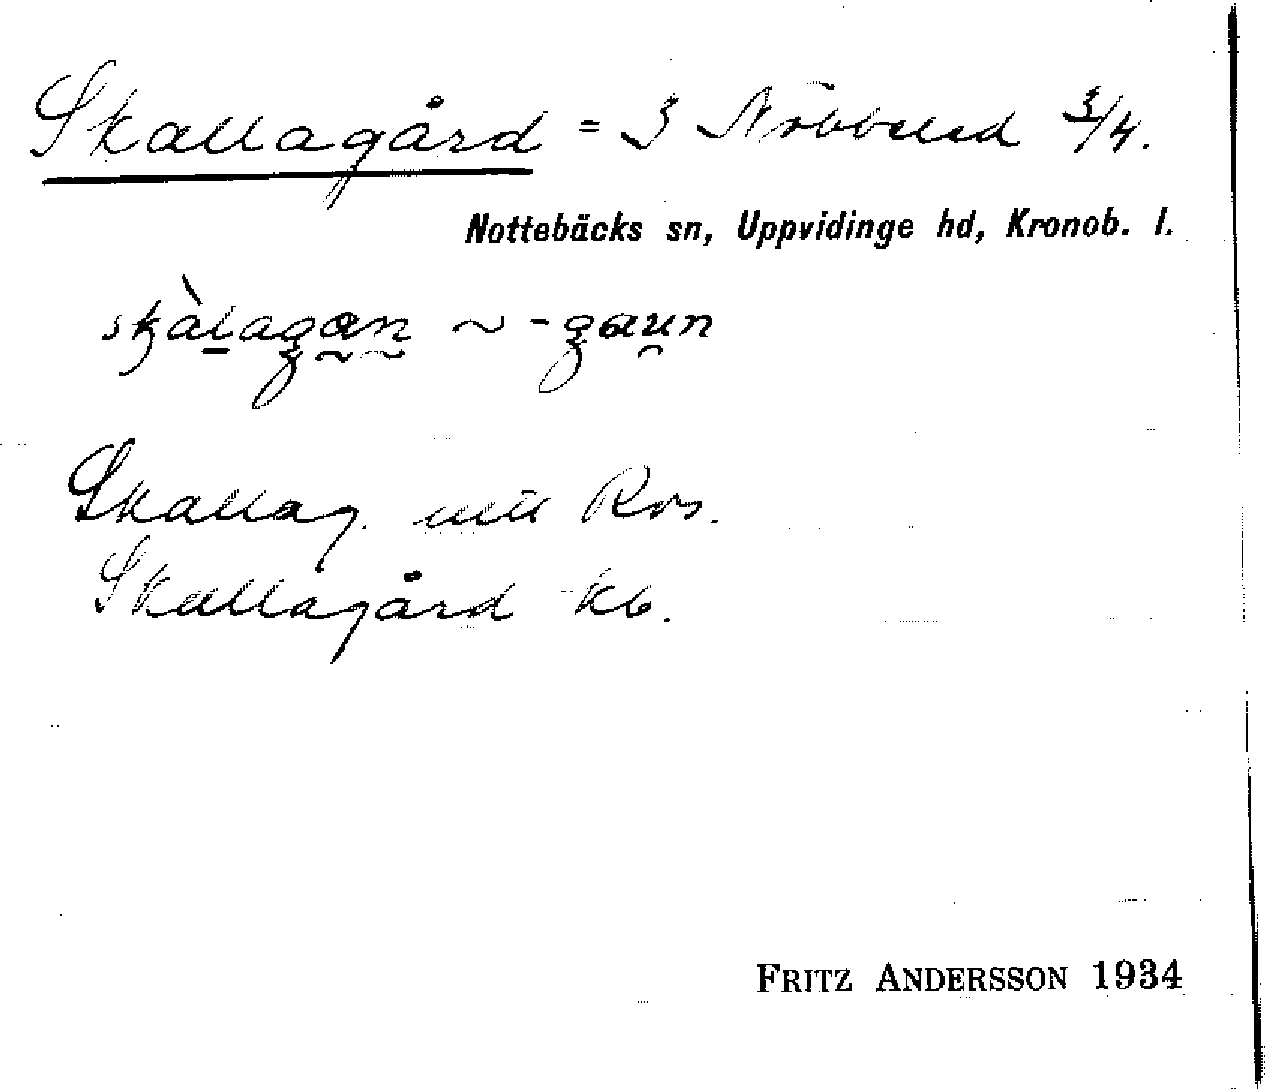 Skallagård = 3 Nöbbeled 3/4.
Nottebäcks sn, Uppvidinge hd, Kronob. l.
skàlagan ~ -gaun
Skallag. Ros.
Skallagård kb.
FRITZ ANDERSSON 1934